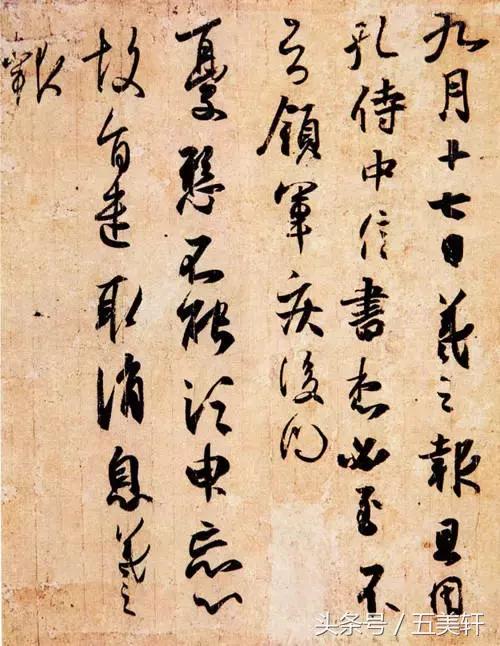 九月十七日羲之報且因
孔侍中信書想必至不
知領軍疾後問
憂懸不能須臾忘心
故旨遣取消息羲之
報
头条号 / 五美轩